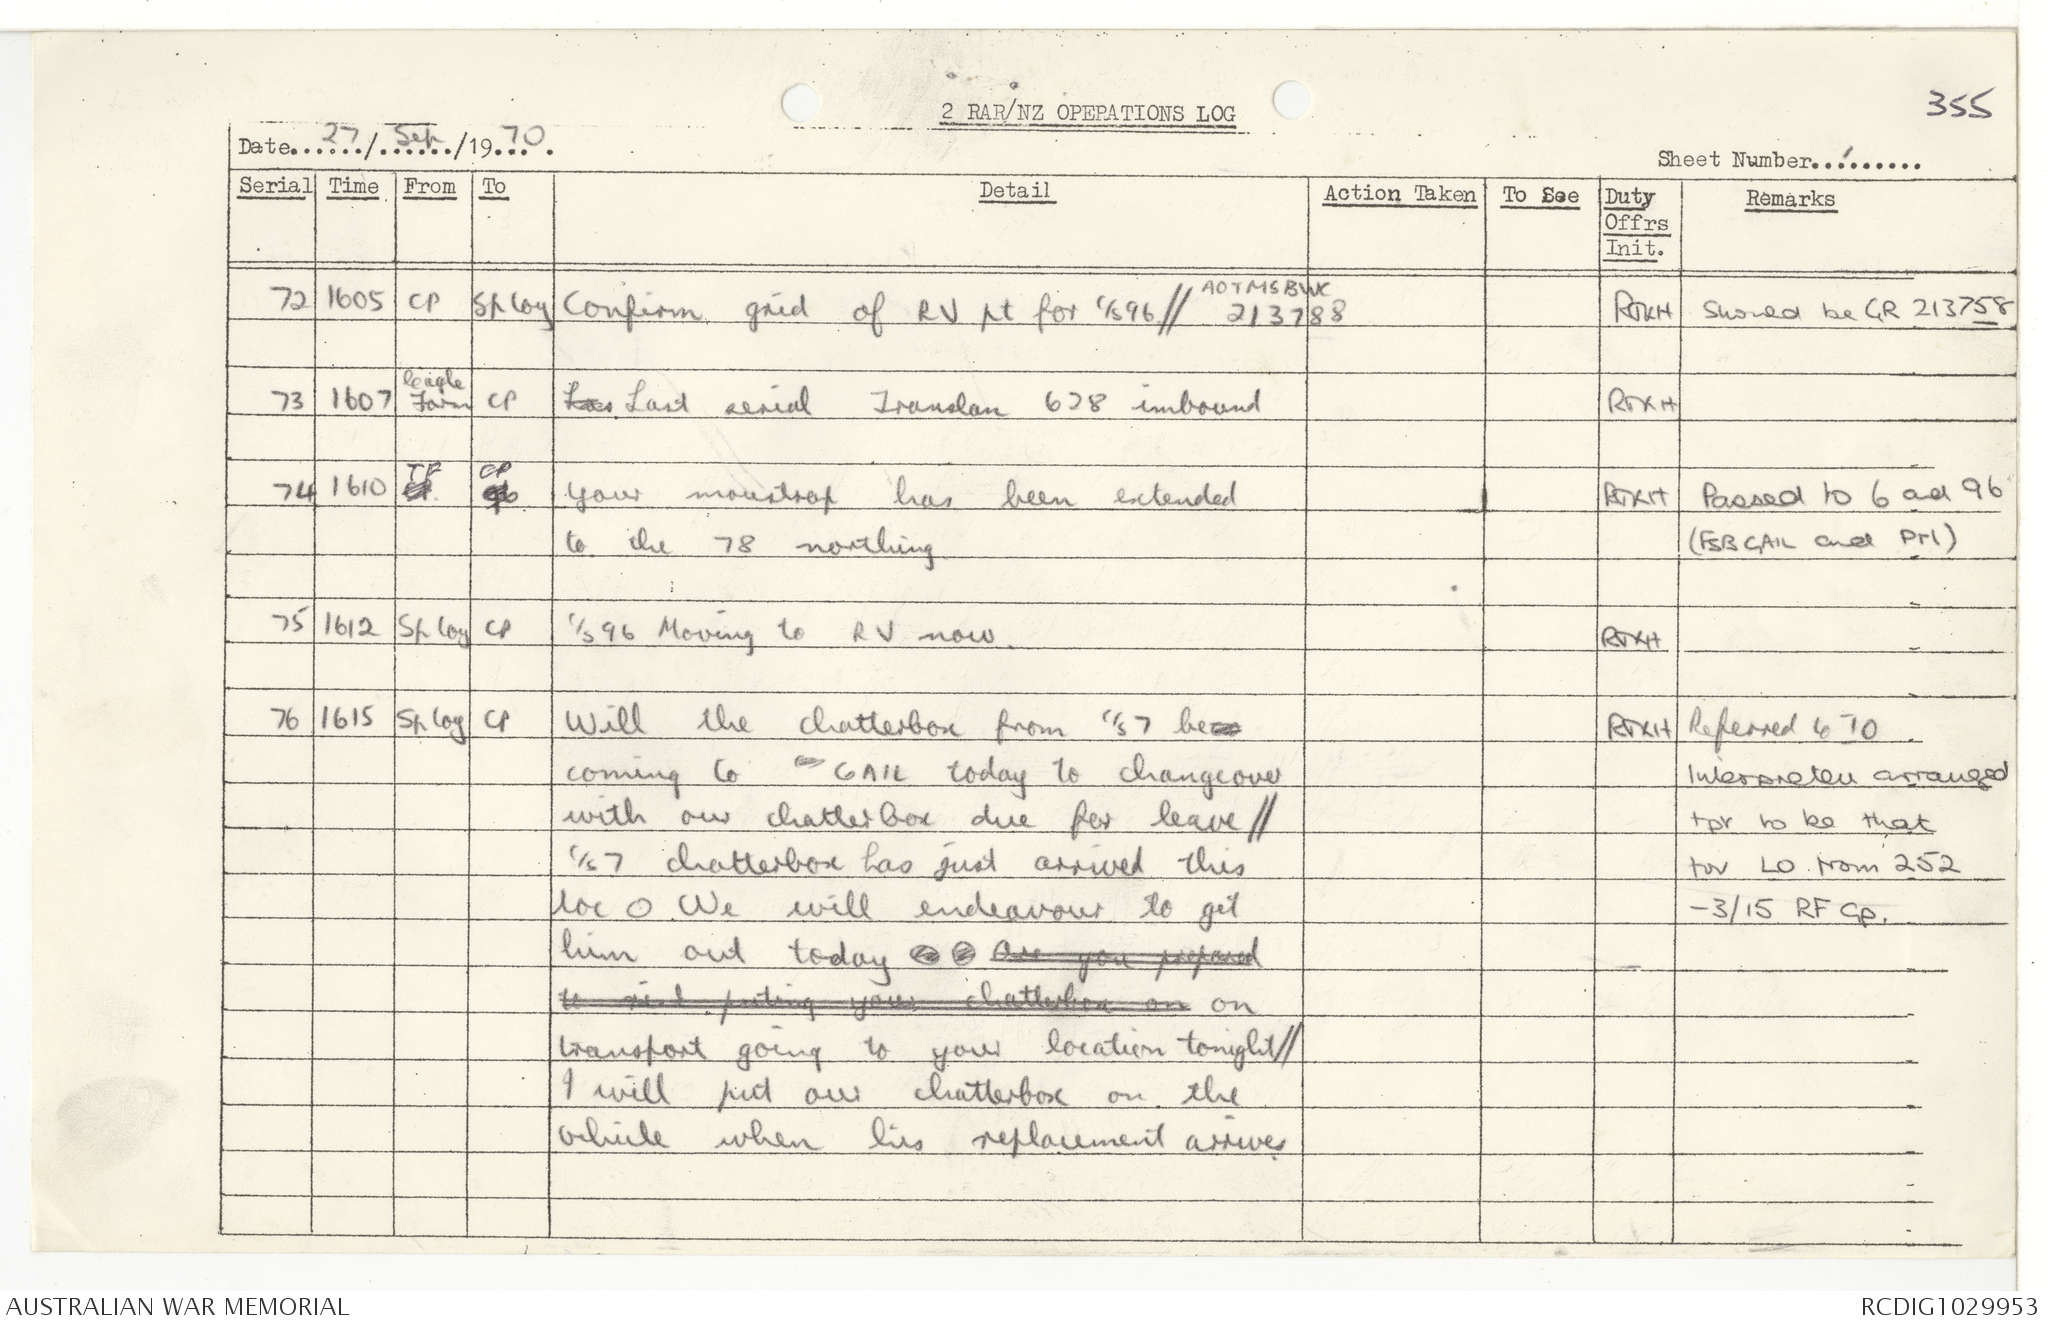 355
2 RAR/NZ OPERATIONS LOG
Date......27/Sep/1970.
Sheet Number..........
Serial Time From To Detail Action Taken To See Duty Offrs Init. Remarks
AOTMSBWK
72 1605 CP Sp Coy Confirm grid of RV pt for C/S 96// 213788 RTKH Should be GR 213758
73 1607 Eagle Farm CP Last serial Translan 678 inbound RTKH
74 1610 TF CP Your moustrap has been extended RTKH Passed to 6 and 96
to the 78 northing (FSB GAIL and Prl)
75 1612 Sp Coy CP C/S 96 Moving to RV now. RTKH
76 1615 Sp Coy CP Will the chatterbox from C/S 7 be RTKH Referred to IO
coming to GAIL today to changeover Interpreter arranged
with our chatterbox due for leave// tpt to be that
C/S 7 chatterbox has just arrived this for LO from 252
loc O We will endeavour to get -3/15 RF Gp.
him out today Are you prepared
to risk putting your chatterbox on on
transport going to your location tonight//
I will put our chatterbox on the
vehicle when his replacement arrives
AUSTRALIAN WAR MEMORIAL
RCDIG1029953